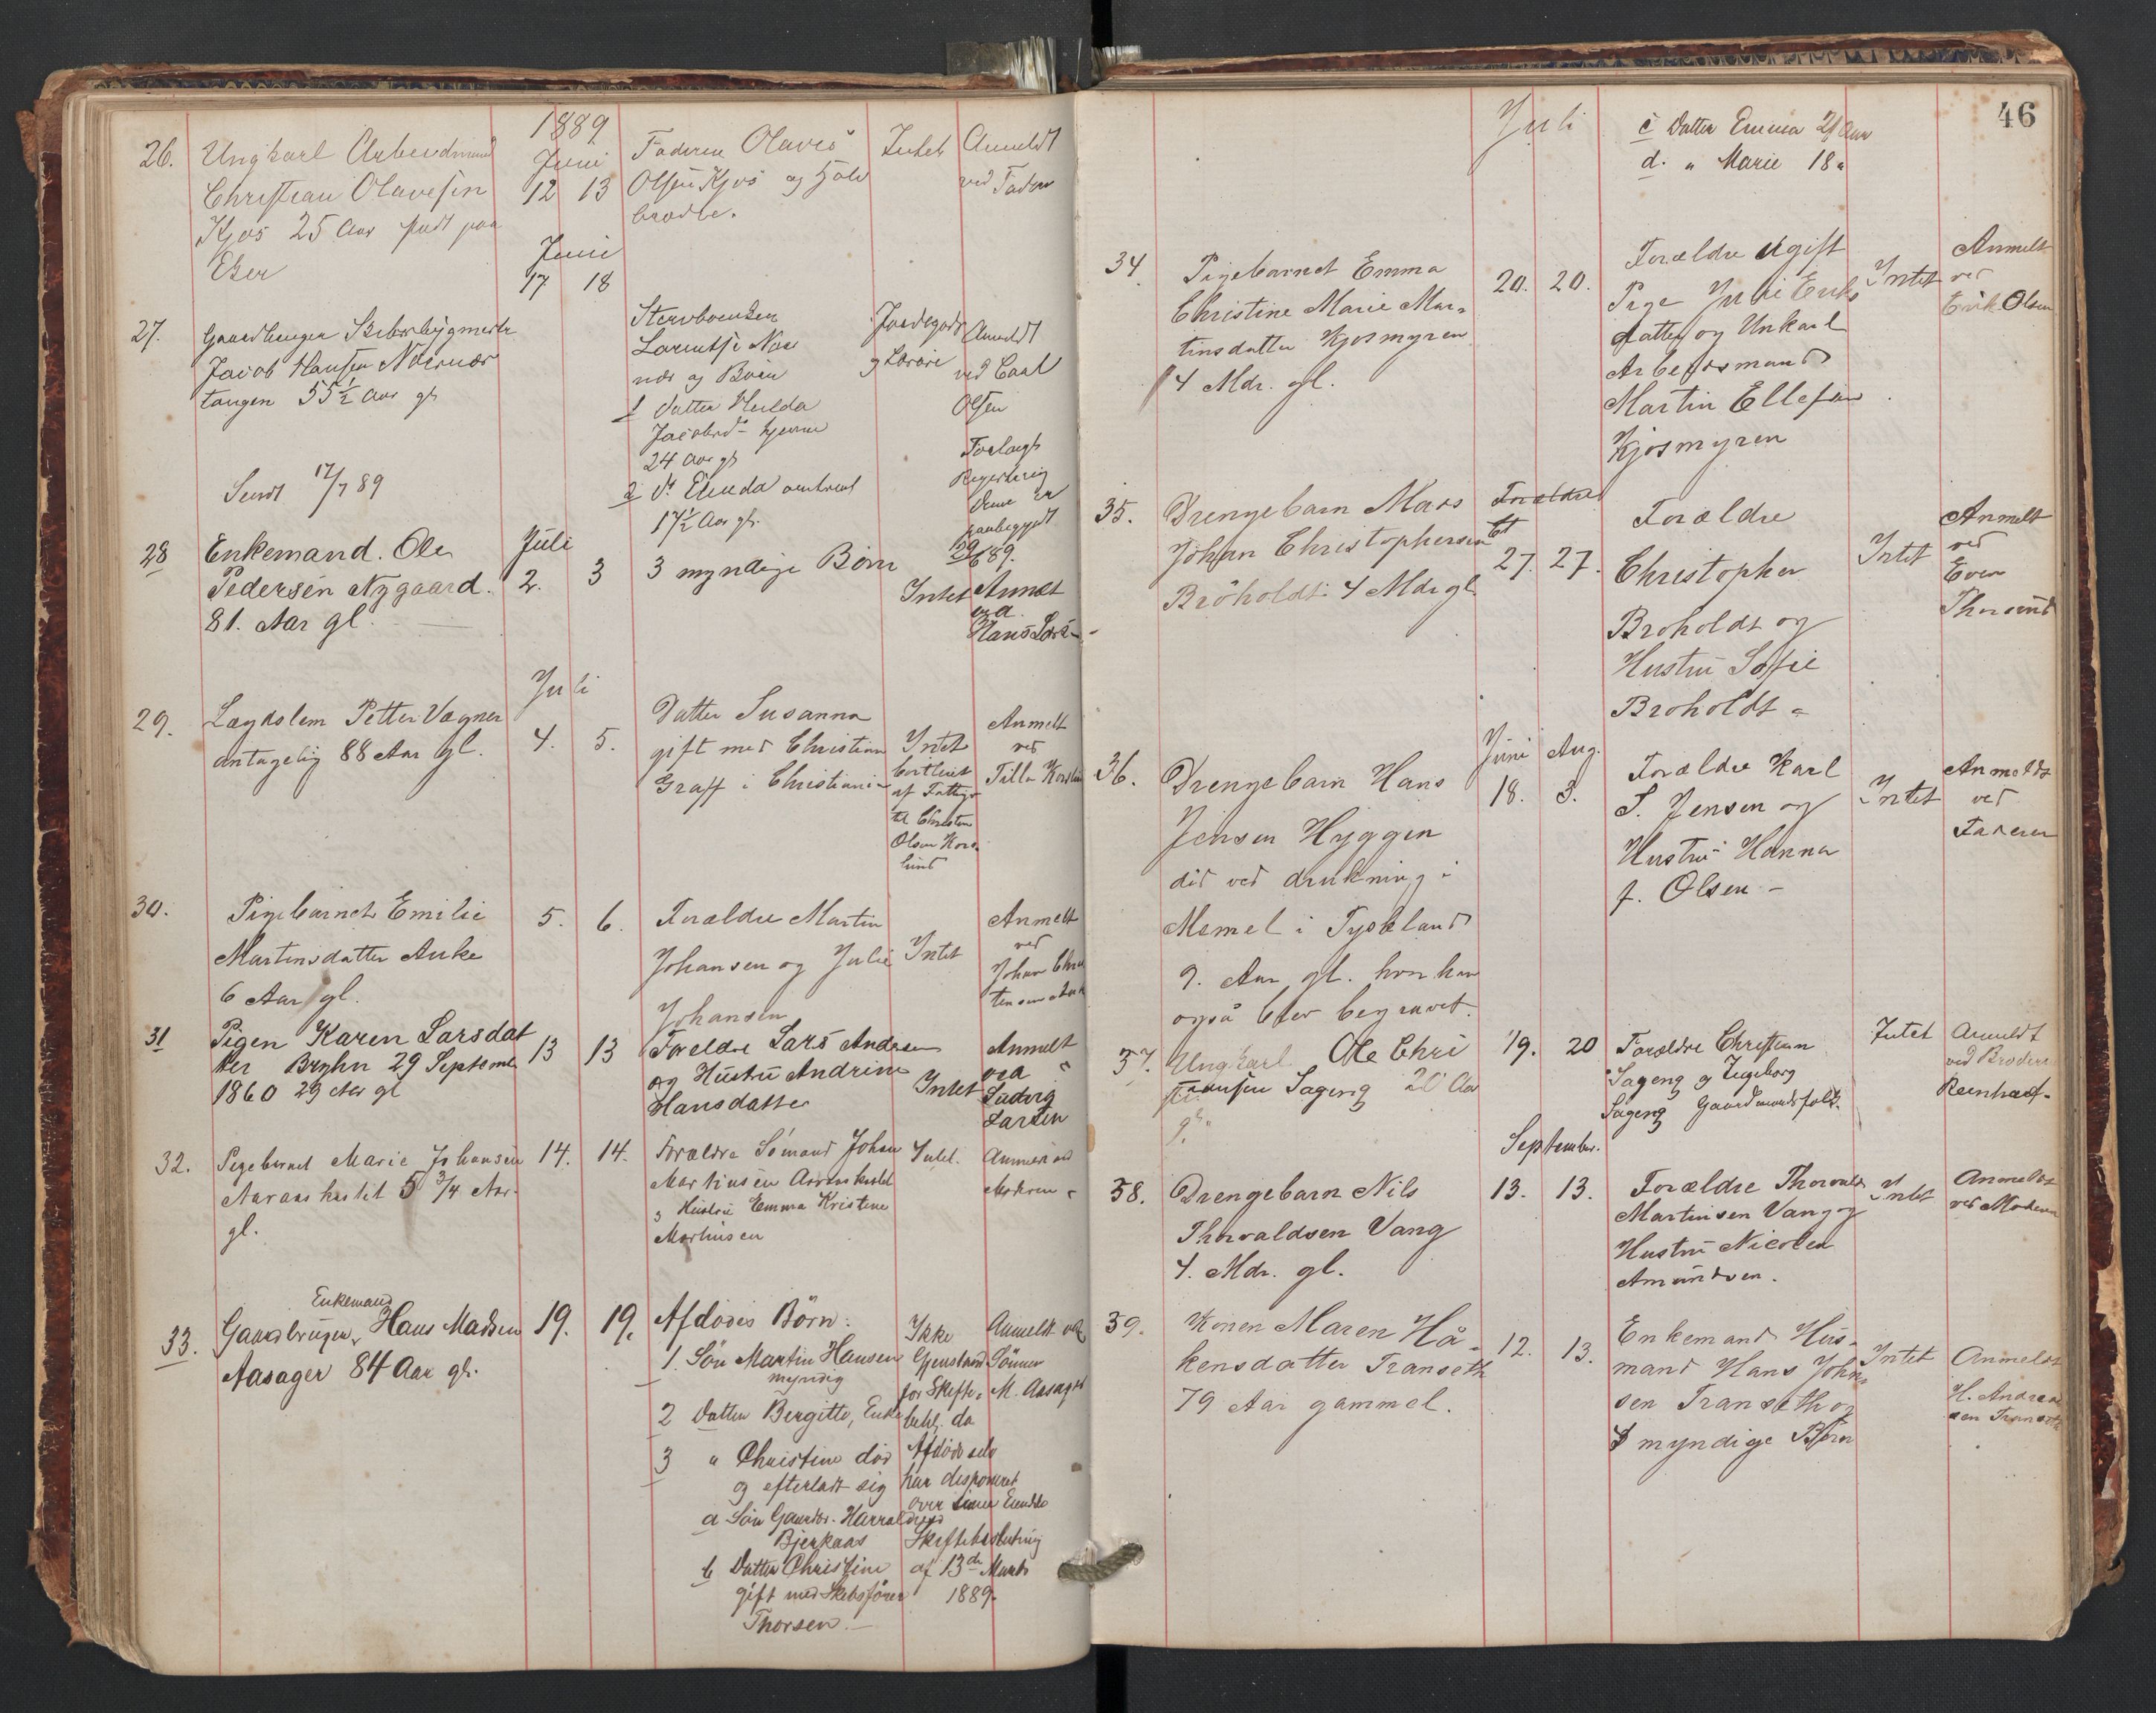 1889
26. Ungkarl Arbeidmand Juni Faderen Olaves Intet Anmeldt
Christian Olavesen 12 13 Olsen Kjos og Halv ved Fader
Kjos 25 Aar født paa brødre.
Eker
Juni
17 18
27. Gaardbruger Skibsbygmester Stervboenken Jordegods Anmeldt
Jacob Hansen Nærsnæs Laurentse Næs og Løsøre ved Carl
tangen 55½ Aar gl næs og Børn Olsen
1 Datter Hulda
Jacobsd hjemme Forlangt
24 Aar gl Registering
Sendt 17/7 89 2 Dr. omtrent Denne er
17½ Aar gl. paabegyndt
29/6 89.
28 Enkemand. Ole Juli
Pedersen Nygaard. 2. 3 3 myndige Børn Intet Anmelt
81. Aar gl. ved
Hans Lars
Juli
29. Lægdslem Petter Vagner 4. 5. Datter Susanna Anmelt
antagelig 88 Aar gl. gift med Christian Intet ved
Graff i Christiania Tilla
af
til Christen
Olsen Kors
lund
30. Pigebarnet Emilie 5. 6. Forældre Martin Anmelt
Martinsdatter Auke Johansen og Julie Intet ved
6 Aar gl. Johansen Johan
31 Pigen Karen Larsdat 13 13 Foreldre Lars Andersen Anmelt
ter Bryhn 29 Septembe og Hustru Andrine Intet ved
1860 29 Aar gl Hansdatter Ludvig
Larsen
32. Pigebarnet Marie Johansen 14. 14. Forældre Sømand Johan Intet. Anmeldt ved
5 3/4 Aar Martinsen
gl. og Hustru Emma Kristine
Martinsen
Enkemand
33. Gaardbruger Hans Madsen 19. 19. Afdødes Børn: Ikke Anmeldt ved
Aasager 84 Aar gl. 1. Søn Martin Hansen Gjenstand Sønnen
myndig for Skifte M. Aasager
2 Datter Bergitte, Enke behl. da
3 " Christine død Afdøde selv
og efterladt sig har disponeret
over sine Eiendele
a Søn Gaardbr. Harrald
Bjerkaas Skiftebeslutning
b Datter Christine af 13de Marts
gift med Skibsfører 1889.
Thorsen.
46
Juli c Datter Emma 21 Aar
d. " Marie 18 "
34 Pigebarnet Emma 20. 20. Forældre Ugift Anmelt
Christine Marie Mar- Pige Juli Eriks Intet ved
tinsdatter Kjosmyren datter og Unkarl Erik Olsen
4 Mdr. gl. Arbeidsmand
Martin Ellefsen
Kjosmyren
35. Drengebarn Mars Forældre Forældre Anmelt
Johan Christophersen 27. 27. Christopher Intet ved
Broholdt 4 Mdr gl. Broholdt og Even
Hustru Sofie
Broholdt
Juni Aug.
36. Drengebarn Hans 18. 3. Forældre Karl Anmeldt
Jensen Hyggen S. Jensen og Intet ved
død ved drukning i Hustru Hanna Faderen
Memel i Tyskland f. Olsen
9. Aar gl. hvor han
også blev begravet.
37. Ungkarl Ole Chri 19. 20 Forældre Christian Intet Anmeldt
stiansen Sageng 20 Aar Sageng og Ingeborg ved Broderen
gl. Sageng Gaardmandsfolk. Reinhart
September.
38. Drengebarn Nils 13. 13. Forældre Thorvald Intet Anmeldt
Thorvaldsen Vang Martinsen Vang og ved Moderen
4. Mdr. gl. Hustru Nicolea
Amundsen.
39. Konen Maren Hå- 12. 13. Enkemand Hus- Intet Anmeldt
kensdatter Transeth mand Hans John- H. Andrea
79 Aar gammel. sen Transeth og sen Transeth
myndige Børn